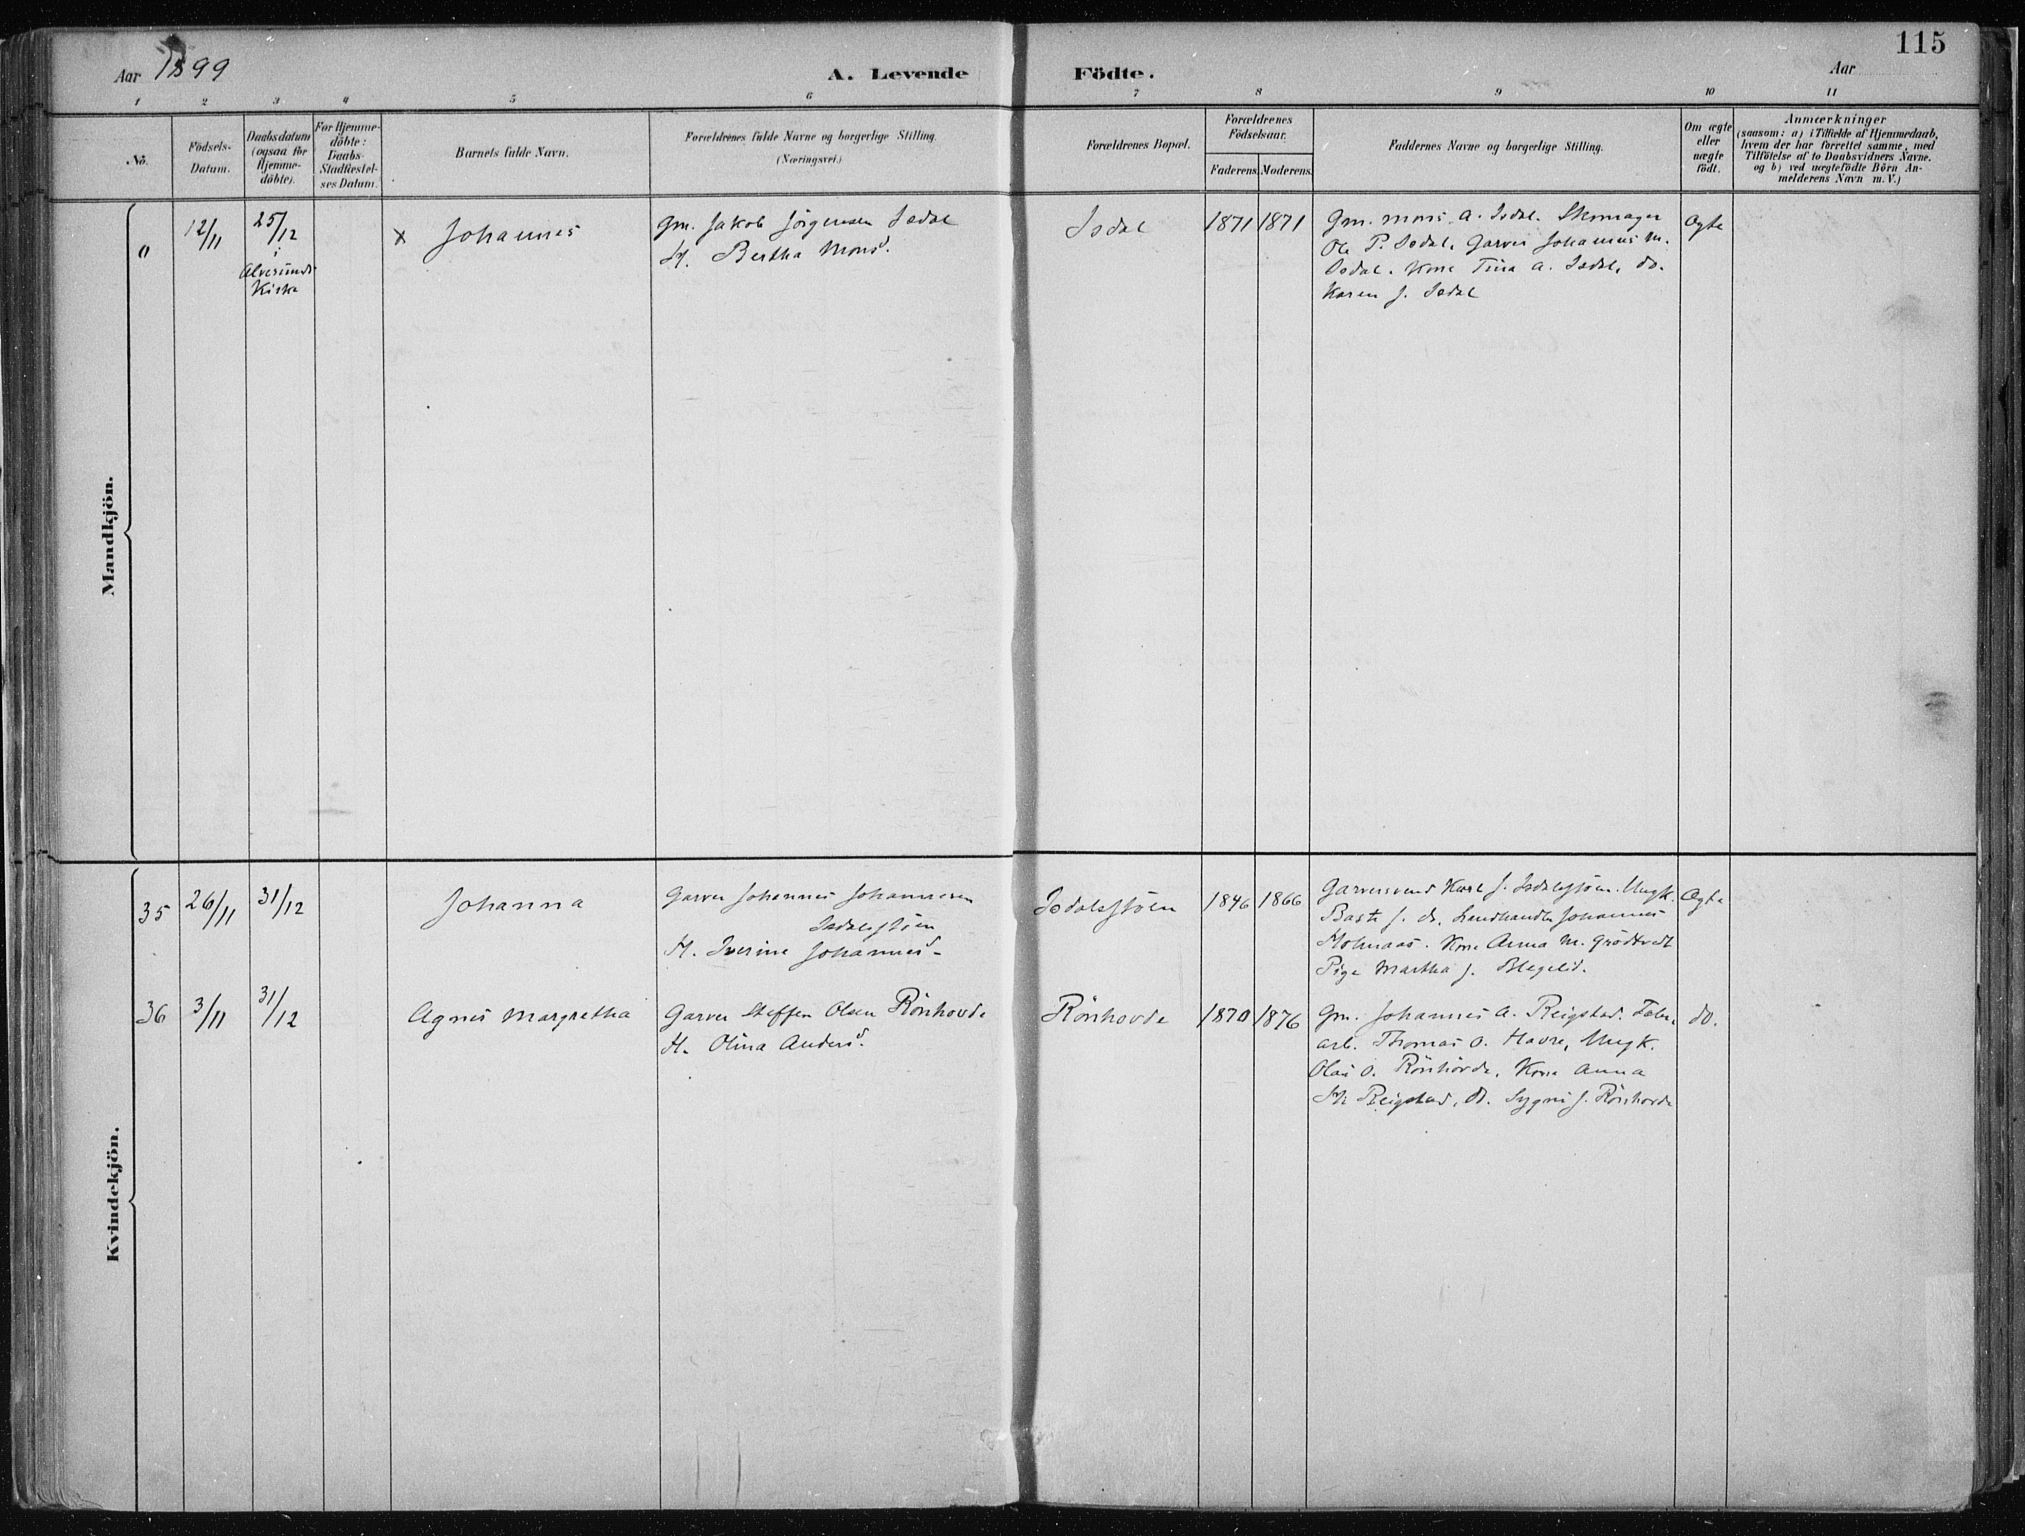 115
Aar 1899
A. Levende Födte.
Aar
1 2 3 4 5 6 7 8 9 10 11
No.
Födsels-
Datum.
Daabsdatum
(ogsaa for
Hjemme-
döbte).
For Hjemme-
döbte:
Daabs-
Stadfæstel-
ses Datum.
Barnets fulde Navn.
Forældrenes fulde Navne og borgerlige Stilling.
(Næringsvei.)
Forældrenes Bopæl.
Forældrenes
Födselsaar.
Faderens. Moderens.
Faddernes Navne og borgerlige Stilling.
Om ægte
eller
uægte
födt.
Anmærkninger
(saasom: a) i Tilfælde af Hjemmedaab,
hvem der har forrettet samme, med
Tilföielse af to Daabsvidners Navne.
og b) ved uægtefödte Börn An-
melderens Navn m. V.)
Mandkjön.
0
12/11
25/12
i
Alversunds
Kirke
x Johannes
Gm. Jakob Jörgensen Isdal
H. Bertha Monsd.
Isdal
1871 1871
Gm. Mons A. Isdal. Skomager
Ole P. Isdal, Garver Johannes M.
Isdal. Kone Tina A. Isdal, do.
Karen J. Isdal
Ægte
Kvindekjön.
35
26/11
31/12
Johanna
Garver Johannes Johannesen
Isdalsstöen
H. Iverine Johannesd.
Isdalsstöen
1846 1866
Garversvend Karl J. Isdalsstöen. Ungk.
J. do. Landhandler Johannes
Holmaas. Kone Anna M.
Pige Martha J.
Ægte
36
3/11
31/12
Agnes Margretha
Garver Steffen Olsen Rönhovde
H. Olina Andersd.
Rönhovde
1870 1876
Gm. Johannes A. Reigstad. Fabr.
arb. Thomas O. Havre, Ungk.
Olai O. Rönhovde, Kone Anna
Reigstad, do. Sygni J. Rönhovde
do.